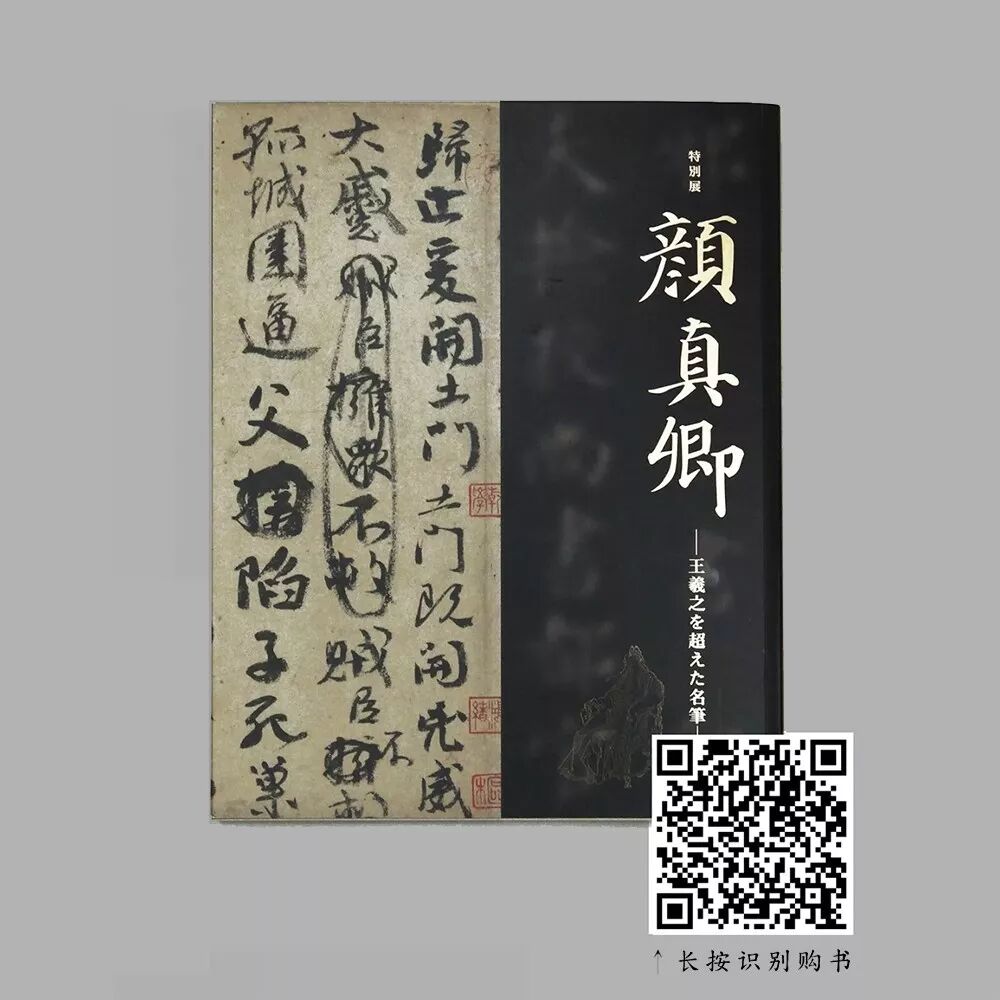 特別展
顔真卿
―王羲之を超えた名筆―
歸止爰開土門土門既開兇威
大蹙賊臣擁衆不救賊臣不救
孤城圍逼父陷子死巢
↑长按识别购书